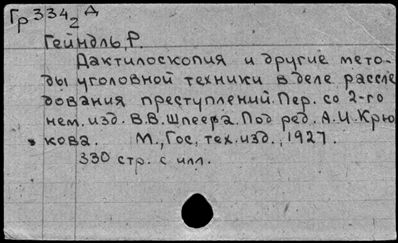 Гр 334/2 Д
Гейндль, Р.
Дактилоскопия и другие мето-
ды уголовной техники в деле рассле
дования преступлений. Пер. со 2-го
нем. изд. В.В. Шпеера. Под ред. А.И. Крю
кова. М., Гос, тех. изд., 1927.
330 стр. с илл.